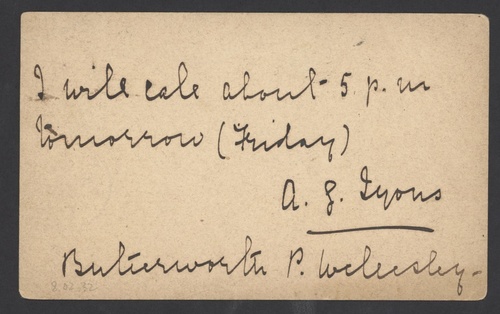 I will call about 5 p.m
tomorrow (Friday)
A. G. Lyons
Butterworth P. Wellesley
8.02.32